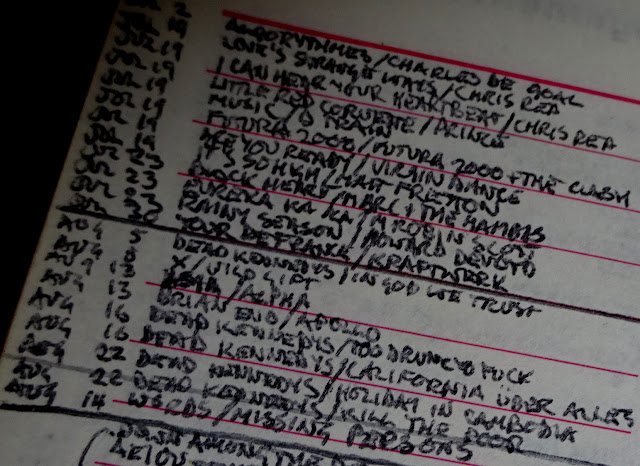 ALGORYTHMES/CHARLES DE GOAL
JUL 19 LOVE'S STRANGE WAYS/CHRIS REA
JUL 19 I CAN HEAR YOUR HEARTBEAT/CHRIS REA
JUL 19 LITTLE RED CORVETTE/PRINCE
JUL 19 MUSIC/D TRAIN
JUL 19 FUTURA 2000/FUTURA 2000 + THE CLASH
ARE YOU READY/VIRGIN DANCE
IT'S SO HIGH/MATT FRETTON
23 BLACK HEART/MARC + THE MAMBAS
EUREKA KA KA/M ROBIN SCOTT
RAINY SEASON/HOWARD DEVOTO
TOUR DE FRANCE/KRAFTWERK
AUG 5 DEAD KENNEDYS/IN GOD WE TRUST
AUG X/WILD GIFT
AUG 13 ASIA/ALPHA
AUG 13 BRIAN ENO/APOLLO
AUG 16 DEAD KENNEDYS/TOO DRUNK TO FUCK
AUG 16 DEAD KENNEDYS/CALIFORNIA UBER ALLES
AUG 22 DEAD KENNEDYS/HOLIDAY IN CAMBODIA
AUG 22 DEAD KENNEDYS/KILL THE POOR
AUG 14 WORDS/MISSING PERSONS
(DOWN AMONG THE
AEIOU